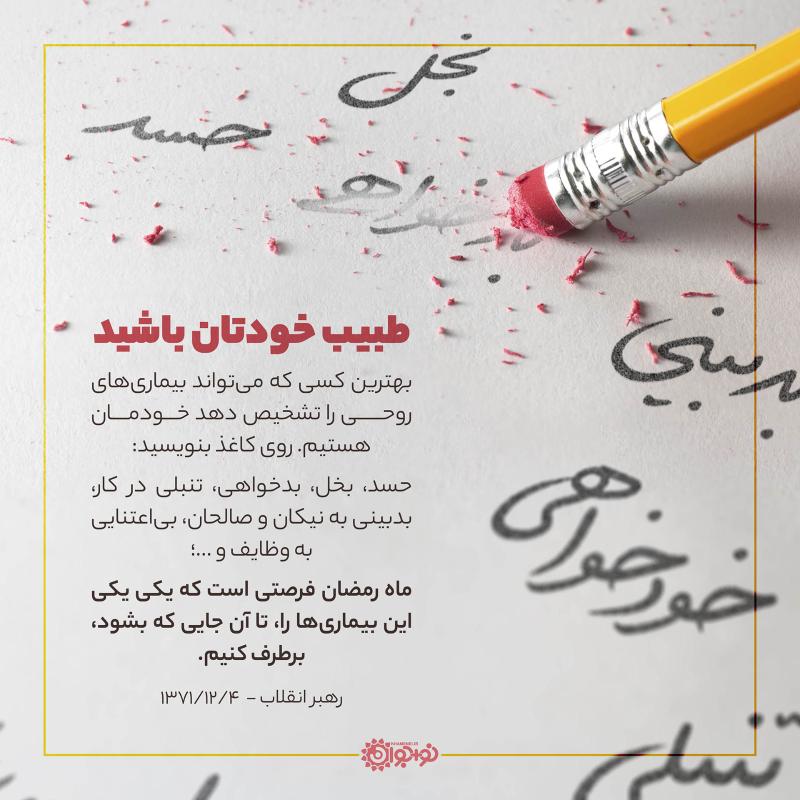 بخل
حسد
بدخواهی
بدبینی
طبیب خودتان باشید
بهترین کسی که می‌تواند بیماری‌های
روحــی را تشخیص دهد خــودمــان
هستیم. روی کاغذ بنویسید:
حسد، بخل، بدخواهی، تنبلی در کار،
بدبینی به نیکان و صالحان، بی‌اعتنایی
به وظایف و ...؛
ماه رمضان فرصتی است که یکی یکی
این بیماری‌ها را، تا آن جایی که بشود،
برطرف کنیم.
خودخواهی
رهبر انقلاب - ۱۳۷۱/۱۲/۴
تنبلی
KHAMENEI.IR
نوجوان